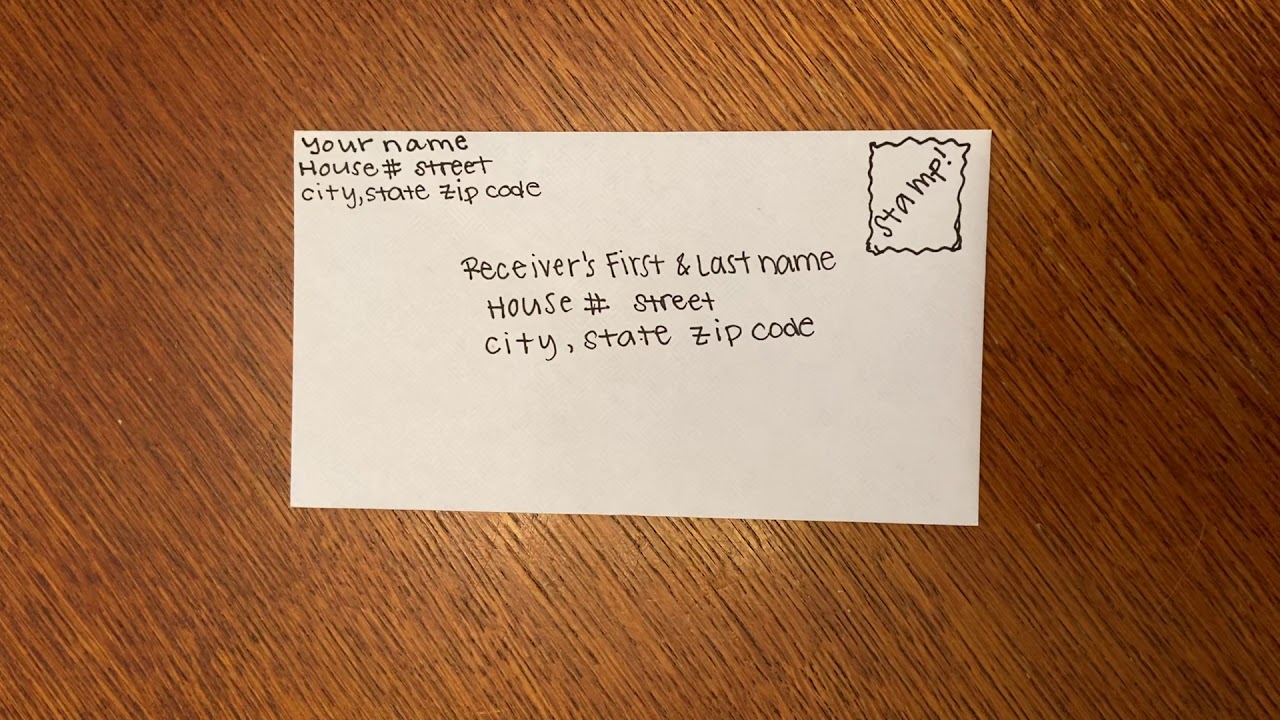 your name
House # street
city, state zip code
stamp!
Receiver's First & Last name
House # street
city, state zip code